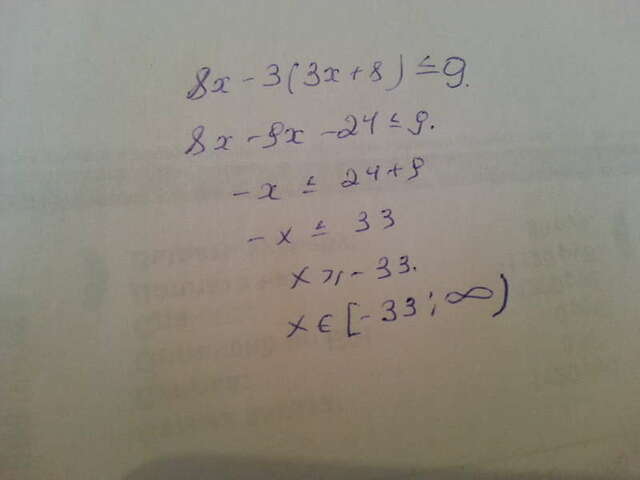 8x - 3(3x + 8) ≤ 9.
8x - 9x - 24 ≤ 9.
-x ≤ 24 + 9
-x ≤ 33
x ⩾ -33.
x ∈ [-33; ∞)